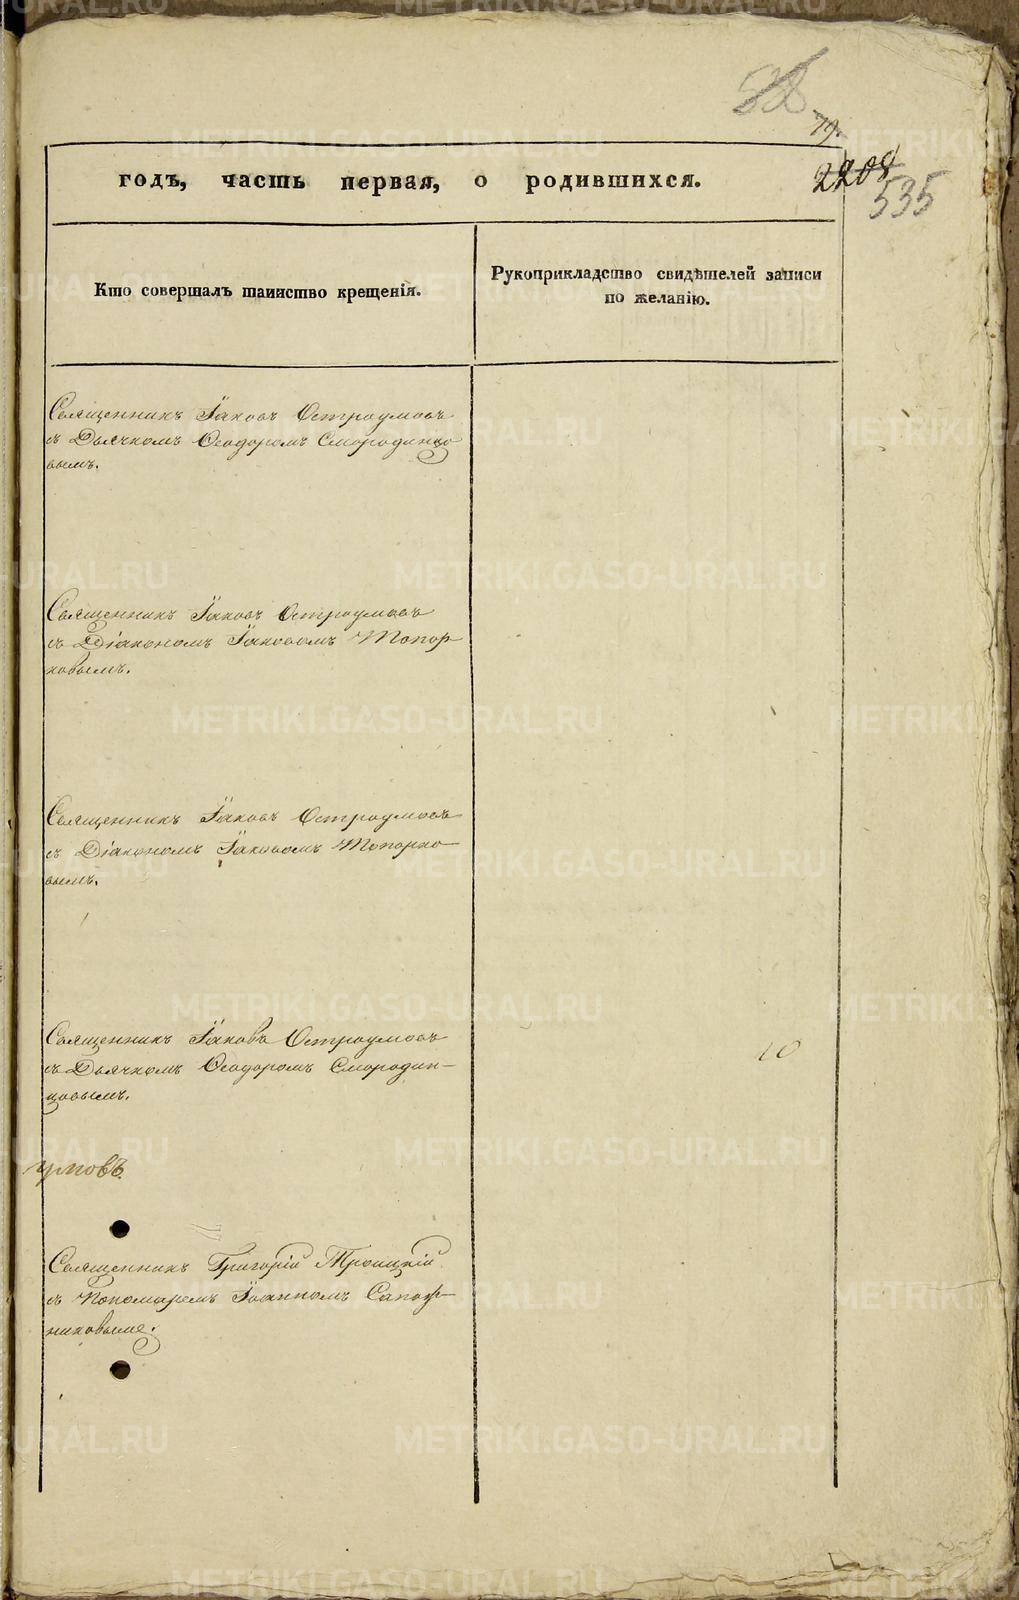 538
79.
2208
535
годъ, часть первая, о родившихся.
Кто совершалъ таинство крещенія.
Рукоприкладство свидѣтелей записи
по желанію.
Священникъ Іаковъ Остроумовъ
съ Дьячкомъ Ѳеодоромъ Смородинцо
вымъ.
Священникъ Іаковъ Остроумовъ
съ Діакономъ Іаковомъ Топор
ковымъ.
Священникъ Іаковъ Остроумовъ
съ Діакономъ Іаковомъ Топорко-
вымъ.
Священникъ Іаковъ Остроумовъ
съ Дьячкомъ Ѳеодоромъ Смородин-
цовымъ.
умовъ.
Священникъ Григорій Троицкій
съ Пономаремъ Іоанномъ Сапож-
никовымъ.
METRIKI.GASO-URAL.RU